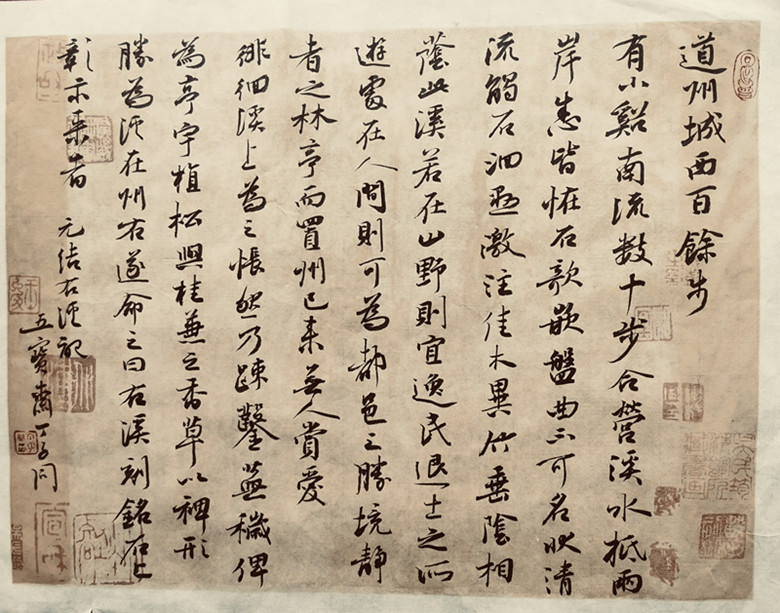 道州城西百餘步
有小谿南流數十步合營溪水抵兩
岸悉皆恠石欹嵌盤曲不可名狀清
流觸石洄懸激注佳木異竹垂陰相
蔭此溪若在山野則宜逸民退士之所
遊處在人間則可為都邑之勝境静
者之林亭而置州已来無人賞愛
徘徊溪上為之悵然乃疎鑿蕪穢俾
為亭宇植松與桂兼之香草以裨形
勝為溪在州右遂命之曰右溪刻銘石上
彰示来者 元结右溪記
五寶齋